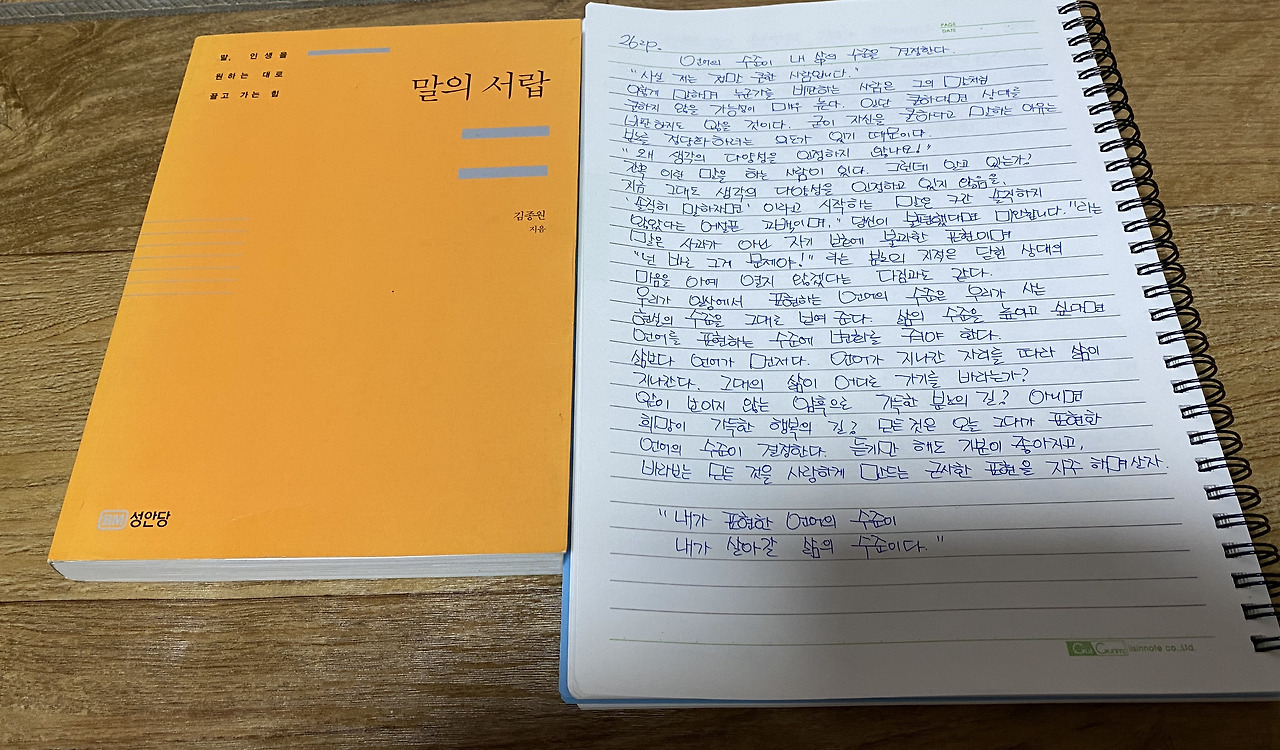 말, 인생을
원하는 대로
끌고 가는 힘
말의 서랍
김종원
지음
BM 성안당
PAGE
DATE
262p.
언어의 수준이 내 삶의 수준을 결정한다.
"사실 저는 정말 귀한 사람입니다."
이렇게 말하며 누군가를 비판하는 사람은 그의 말처럼
귀하지 않을 가능성이 매우 높다. 일단 귀하다면 상대를
비판하지도 않을 것이다. 굳이 자신을 귀하다고 말하는 이유는
분노를 정당화하려는 의도가 있기 때문이다.
"왜 생각의 다양성을 인정하지 않나요!"
간혹 이런 말을 하는 사람이 있다. 그런데 알고 있는가?
지금 그대도 생각의 다양성을 인정하고 있지 않음을.
'솔직히 말하자면' 이라고 시작하는 말은 그간 솔직하지
않았다는 어설픈 고백이며, "당신이 불편했다면 미안합니다."라는
말은 사과가 아닌 자기 변호에 불과한 표현이며
"넌 바로 그게 문제야!" 하는 분노의 지적은 닫힌 상대의
마음을 아예 열지 않겠다는 다짐과도 같다.
우리가 일상에서 표현하는 언어의 수준은 우리가 사는
현실의 수준을 그대로 보여 준다. 삶의 수준을 높이고 싶다면
언어를 표현하는 수준에 변화를 줘야 한다.
삶보다 언어가 먼저다. 언어가 지나간 자리를 따라 삶이
지나간다. 그대의 삶이 어디로 가기를 바라는가?
앞이 보이지 않는 암흑으로 가득한 분노의 길? 아니면
희망이 가득한 행복의 길? 모든 것은 오늘 그대가 표현한
언어의 수준이 결정한다. 듣기만 해도 기분이 좋아지고,
바라보는 모든 것을 사랑하게 만드는 근사한 표현을 자주 하며 살자.
"내가 표현한 언어의 수준이
내가 살아갈 삶의 수준이다."
lisinnote co.,Ltd.